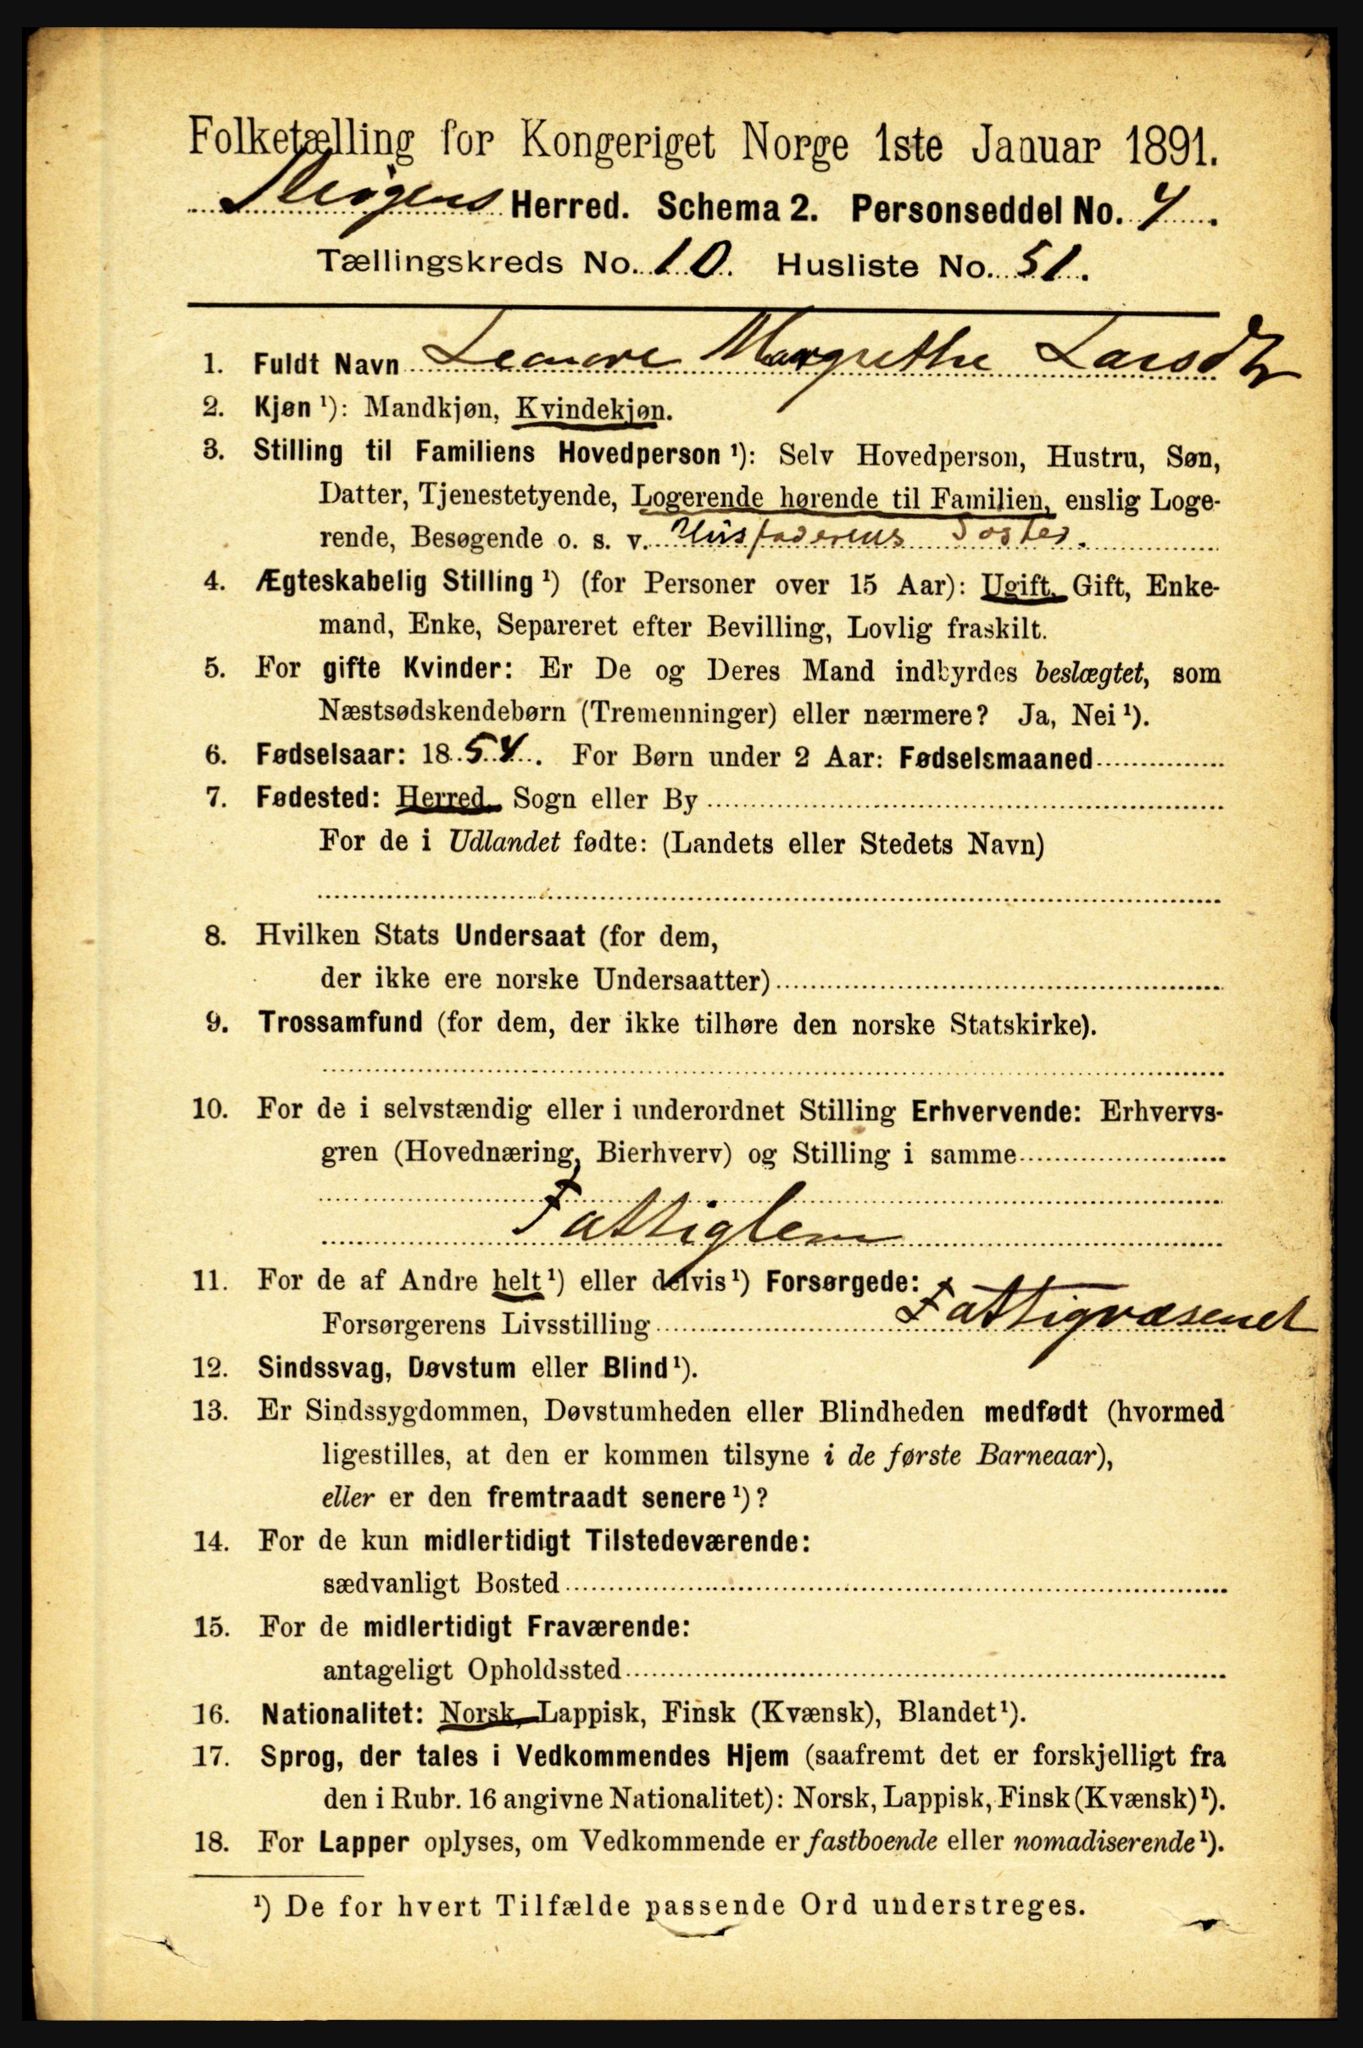 Folketælling for Kongeriget Norge 1ste Januar 1891.
Herred. Schema 2. Personseddel No. 4.
Tællingskreds No. 10. Husliste No. 51.
1. Fuldt Navn Leonore Margrethe Larsdtr
2. Kjøn ¹): Mandkjøn, Kvindekjøn.
3. Stilling til Familiens Hovedperson ¹): Selv Hovedperson, Hustru, Søn,
Datter, Tjenestetyende, Logerende hørende til Familien, enslig Loge-
rende, Besøgende o. s. v. Husfaderens Søster.
4. Ægteskabelig Stilling ¹) (for Personer over 15 Aar): Ugift, Gift, Enke-
mand, Enke, Separeret efter Bevilling, Lovlig fraskilt.
5. For gifte Kvinder: Er De og Deres Mand indbyrdes beslægtet, som
Næstsødskendebørn (Tremenninger) eller nærmere? Ja, Nei ¹).
6. Fødselsaar: 1854. For Børn under 2 Aar: Fødselsmaaned
7. Fødested: Herred, Sogn eller By
For de i Udlandet fødte: (Landets eller Stedets Navn)
8. Hvilken Stats Undersaat (for dem,
der ikke ere norske Undersaatter)
9. Trossamfund (for dem, der ikke tilhøre den norske Statskirke).
10. For de i selvstændig eller i underordnet Stilling Erhvervende: Erhvervs-
gren (Hovednæring, Bierhverv) og Stilling i samme
Fattiglem
11. For de af Andre helt ¹) eller delvis ¹) Forsørgede:
Forsørgerens Livsstilling Fattigvæsenet
12. Sindssvag, Døvstum eller Blind ¹).
13. Er Sindssygdommen, Døvstumheden eller Blindheden medfødt (hvormed
ligestilles, at den er kommen tilsyne i de første Barneaar),
eller er den fremtraadt senere ¹)?
14. For de kun midlertidigt Tilstedeværende:
sædvanligt Bosted
15. For de midlertidigt Fraværende:
antageligt Opholdssted
16. Nationalitet: Norsk, Lappisk, Finsk (Kvænsk), Blandet ¹).
17. Sprog, der tales i Vedkommendes Hjem (saafremt det er forskjelligt fra
den i Rubr. 16 angivne Nationalitet): Norsk, Lappisk, Finsk (Kvænsk) ¹).
18. For Lapper oplyses, om Vedkommende er fastboende eller nomadiserende ¹).
¹) De for hvert Tilfælde passende Ord understreges.